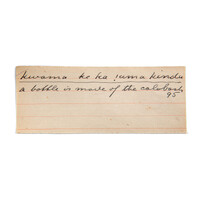 kwama ko ka !uma kindu
a bottle is made of the calabash
95